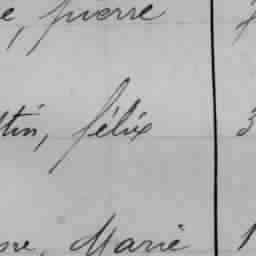 e, pierre
ttin, félix 3
ne, Marie 1